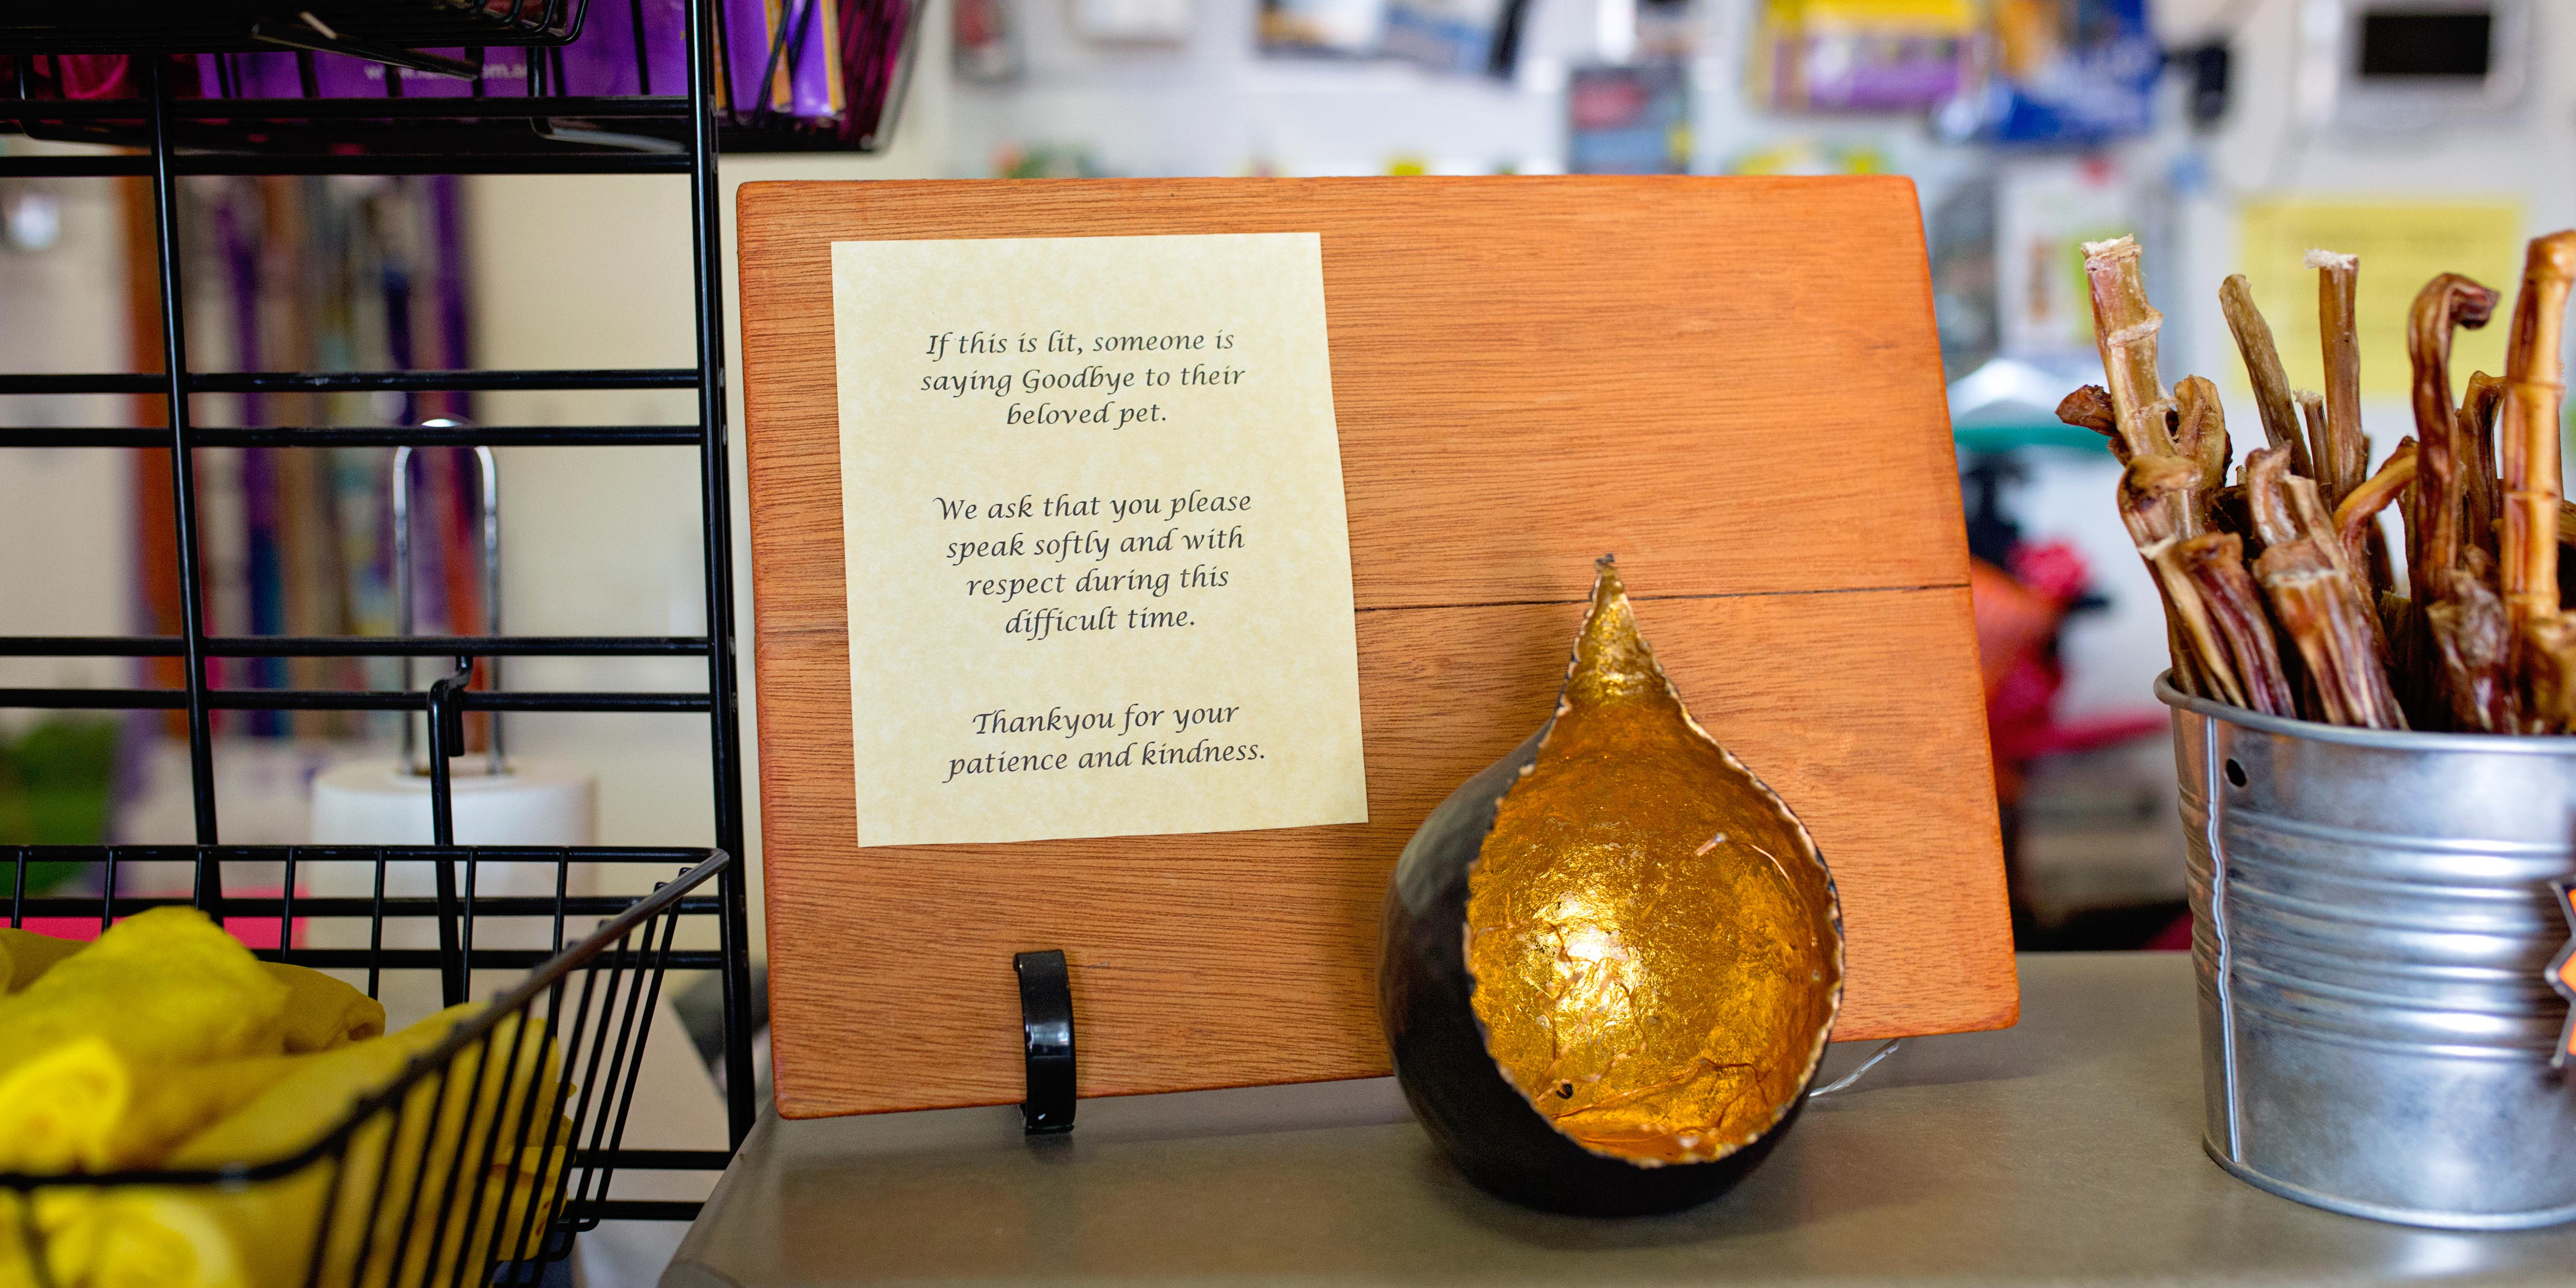 If this is lit, someone is
saying Goodbye to their
beloved pet.
We ask that you please
speak softly and with
respect during this
difficult time.
Thankyou for your
patience and kindness.